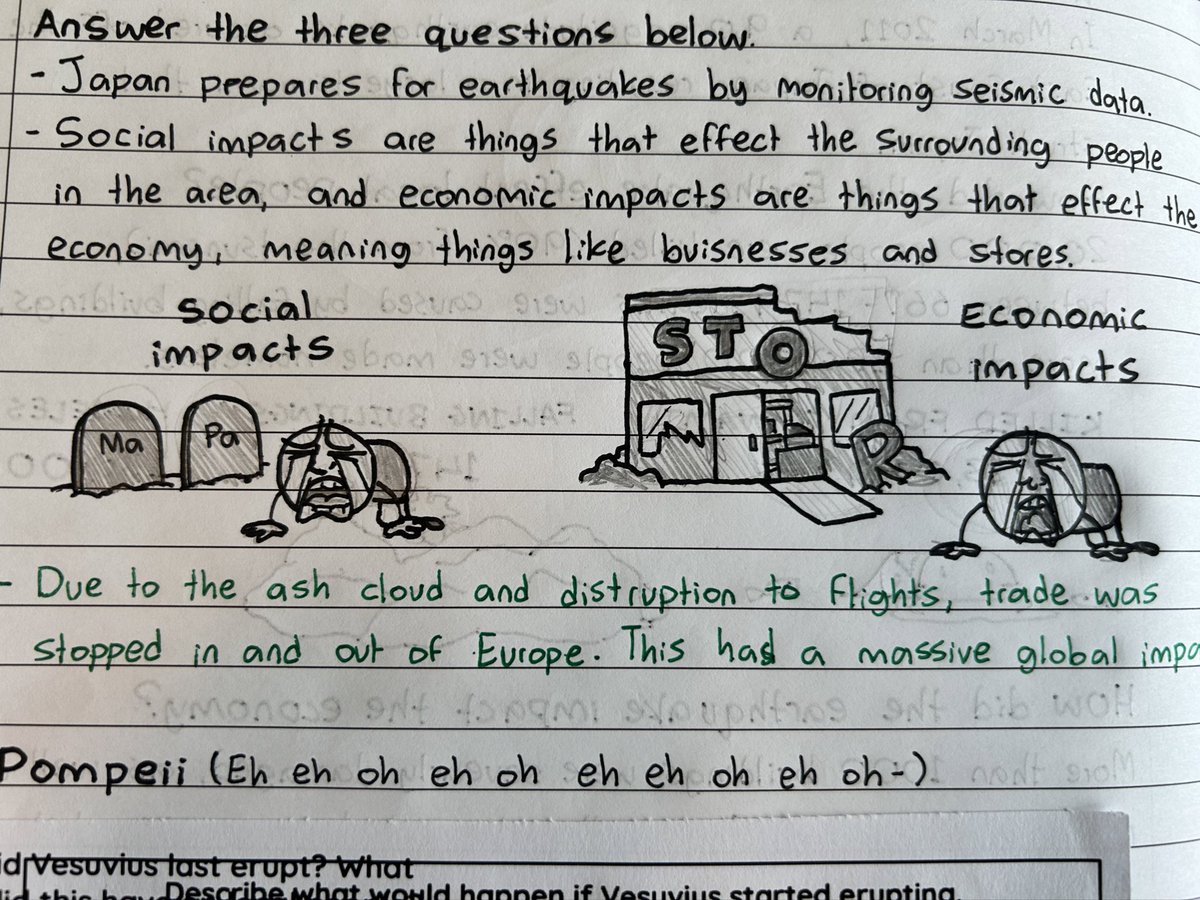 Answer the three questions below.
- Japan prepares for earthquakes by monitoring seismic data.
- Social impacts are things that effect the surrounding people
in the area, and economic impacts are things that effect the
economy, meaning things like buisnesses and stores.
social
impacts
Economic
impacts
STO
R
Ma
Pa
- Due to the ash cloud and distruption to flights, trade was
stopped in and out of Europe. This had a massive global impa
Pompeii (Eh eh oh eh oh eh eh oh eh oh-)
Vesuvius last erupt? What
Describe what would happen if Vesuvius started erupting